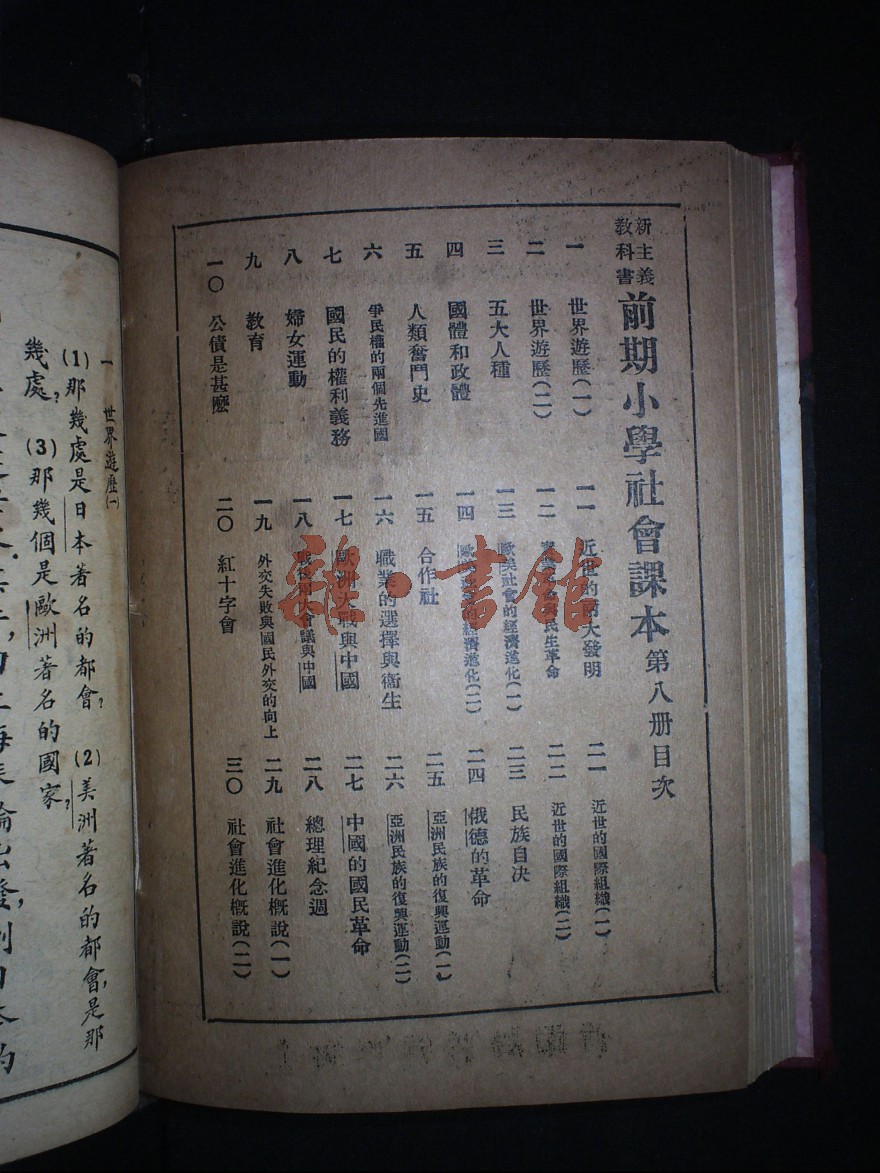 新主義
教科書
前期小學社會課本 第八册目次
一 世界遊歷(一)
二 世界遊歷(二)
三 五大人種
四 國體和政體
五 人類奮鬥史
六 爭民權的兩個先進國
七 國民的權利義務
八 婦女運動
九 教育
一〇 公債是甚麽
一一 近世的兩大發明
一二 與民生革命
一三 歐美社會的經濟進化(一)
一四 歐美社會的經濟進化(二)
一五 合作社
一六 職業的選擇與衞生
一七 歐洲大戰與中國
一八 戰後兩大會議與中國
一九 外交失敗與國民外交的向上
二〇 紅十字會
二一 近世的國際組織(一)
二二 近世的國際組織(二)
二三 民族自决
二四 俄德的革命
二五 亞洲民族的復興運動(一)
二六 亞洲民族的復興運動(二)
二七 中國的國民革命
二八 總理紀念週
二九 社會進化概說(一)
三〇 社會進化概說(二)
雜·書館
一 世界遊歷(一)
(1)那幾處是日本著名的都會? (2)美洲著名的都會,是那
幾處? (3)那幾個是歐洲著名的國家?